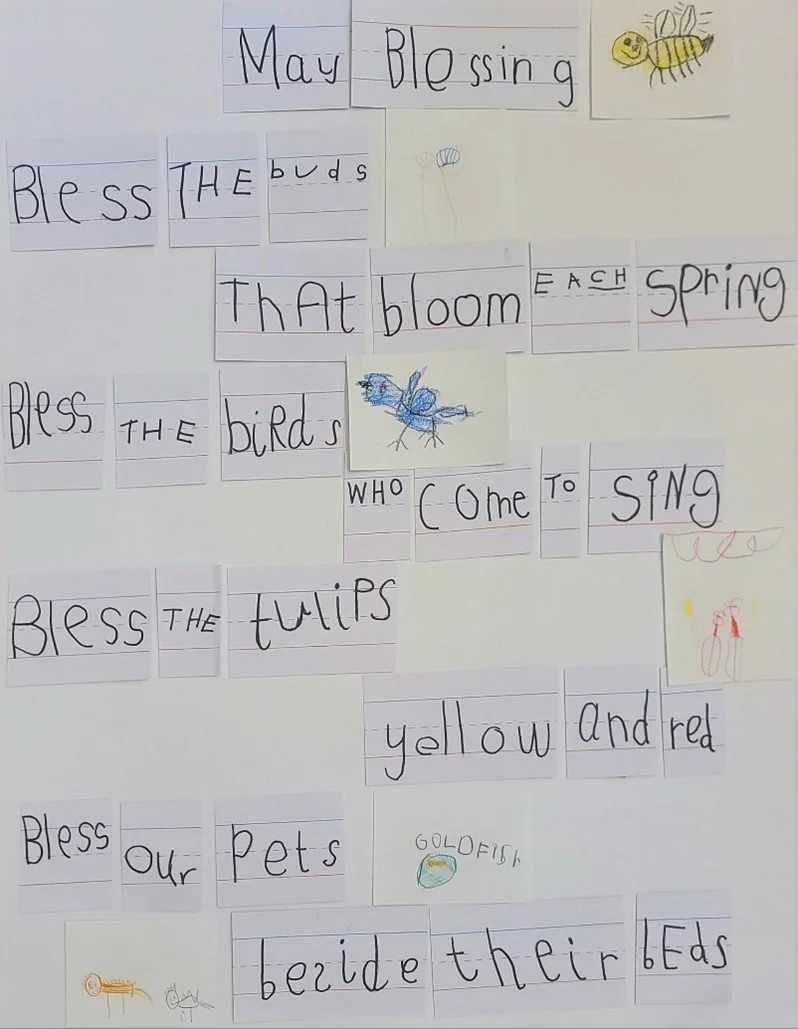 May Blessing
Bless THE buds
ThAt bloom EACH spring
Bless THE biRds
WHO Come TO SiNg
Bless THE tuliPS
yellow and red
Bless our Pets
GOLDFISh
bezide their bEds